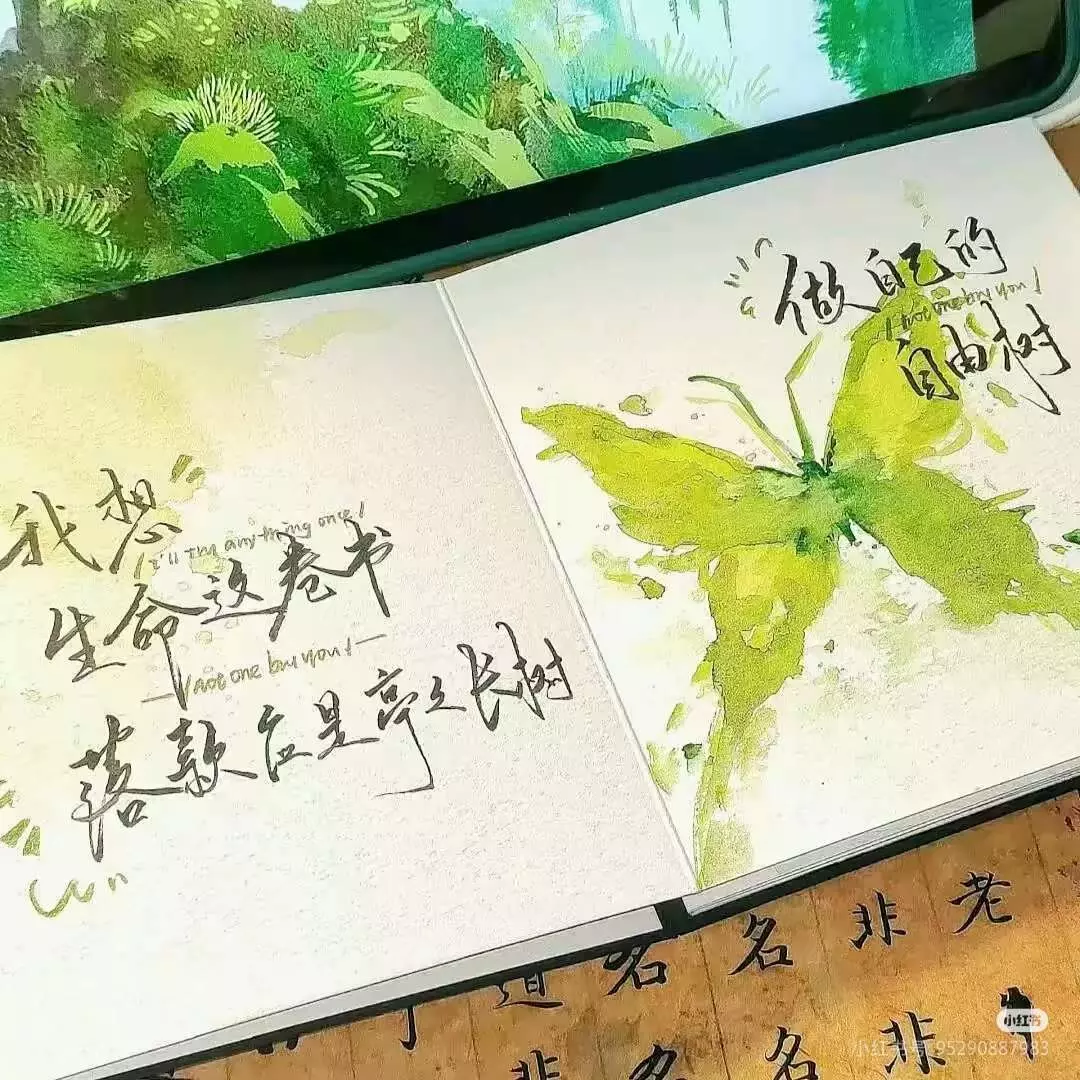 我想
I'll try anything once!
生命这卷书
not one but you!
落款应是亭亭长树
做自己的
not one but you!
自由树
道 名 名 非 老
非 名 名 非
小红书
小红书号:95290887983